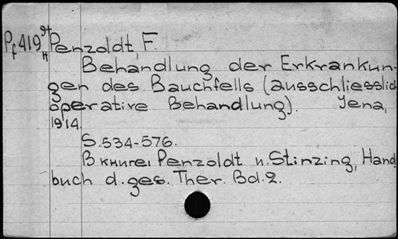 Pf 419 Penzoldt, F.
Behandlung der Erkrankun-
gen des Bauchfells (ausschliesslich
operative Behandlung). Jena,
1914.
S. 534-576.
В книге: Penzoldt u. Stinzing, Hand
buch d. ges. Ther. Bd. 2.